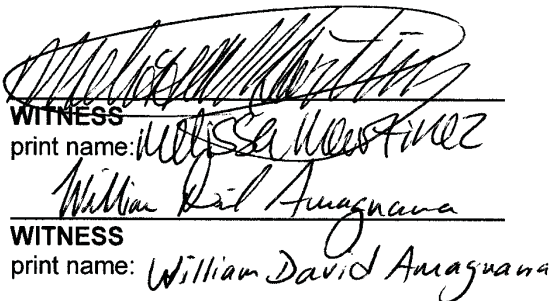 Melissa Martinez
WITNESS
print name: Melissa Martinez
William David Amagnana
WITNESS
print name: William David Amagnana